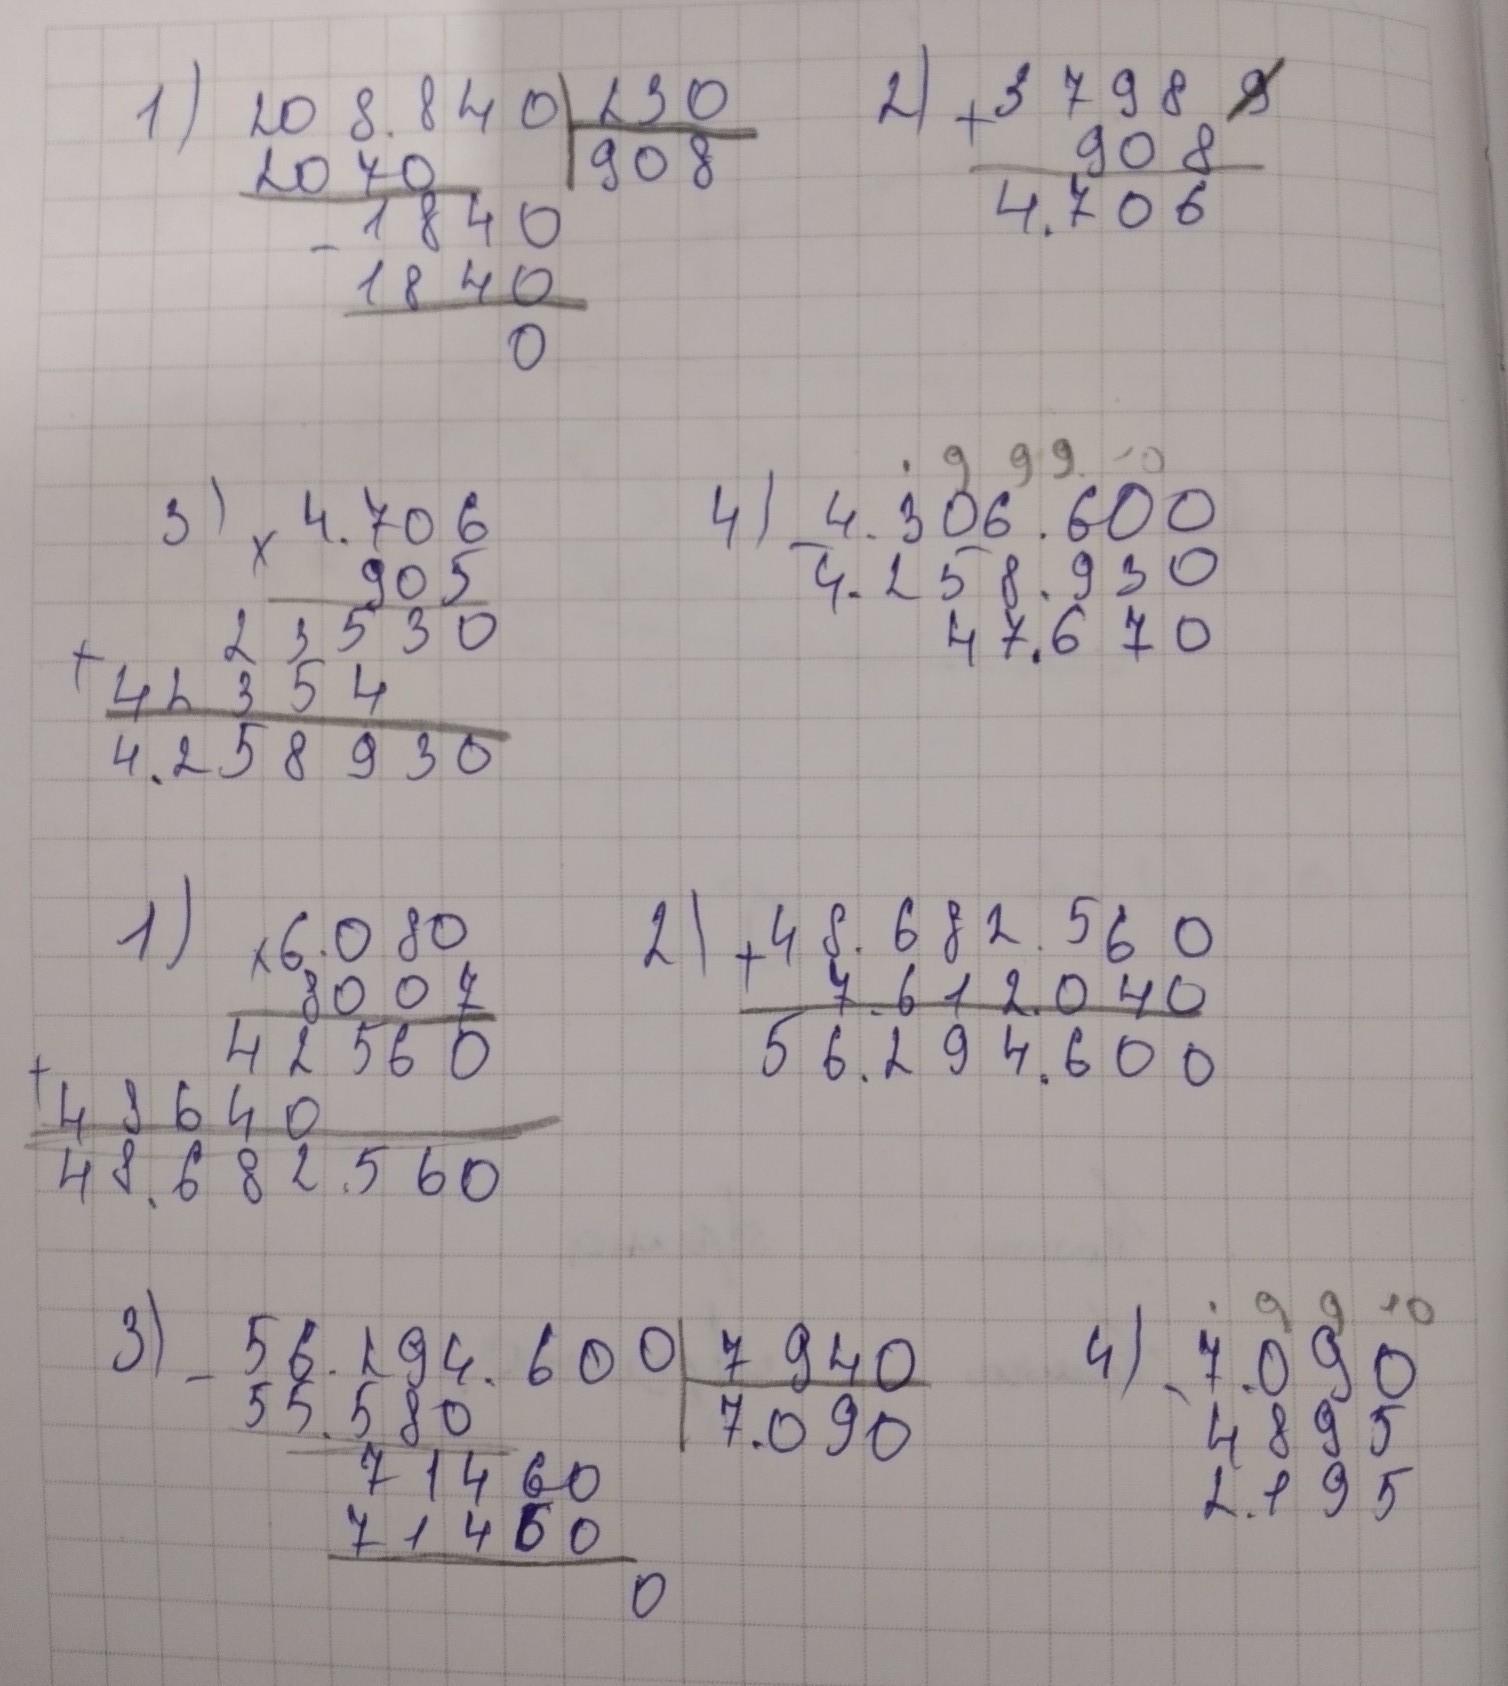 1) 208.840 230
2070 908
1840
- 1840
0
2) + 3798 9
908
4.706
3) x 4.706
905
23530
+ 42354
4.258930
4) 999 10
- 4.306.600
4.258.930
47.670
1) x 6.080
8007
42560
+ 48640
48.682.560
2) + 48.682.560
7.612.040
56.294.600
3) - 56.294.600 7940
55.580 7.090
71460
71460
0
4) 9 9 10
- 7.090
4895
2.195